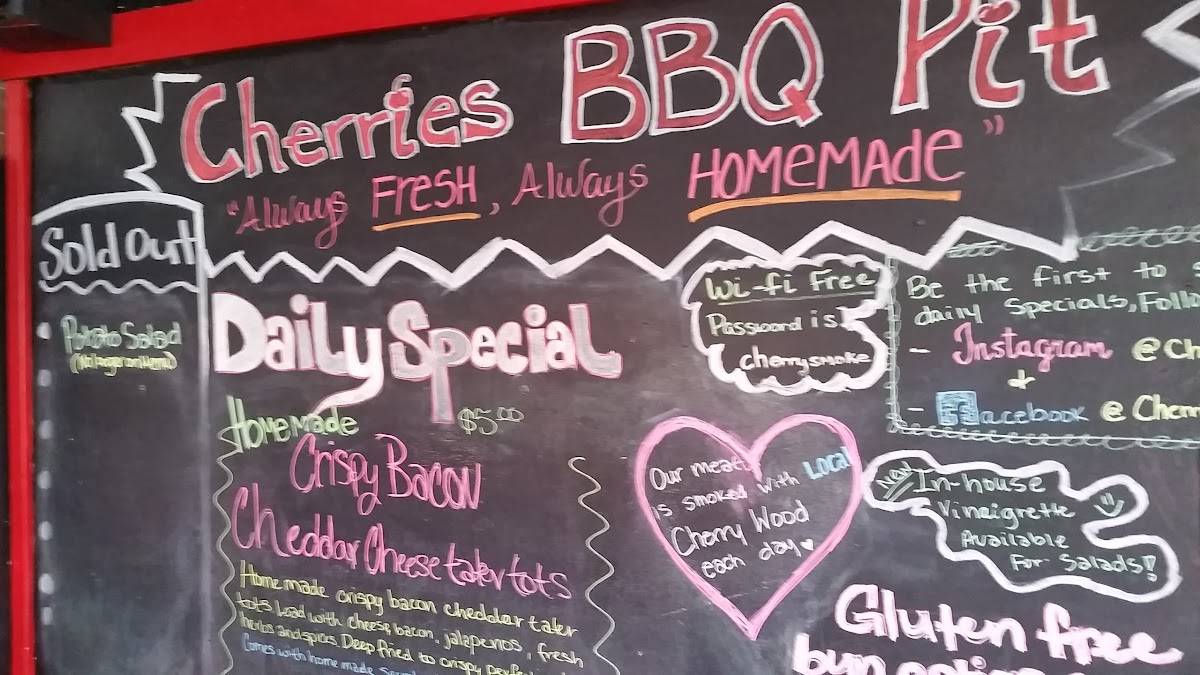 Cherries BBQ Pit
"Always FRESH, Always HOMEMADE"
Sold Out
Potato Salad
Daily Special
Homemade $5.00
Crispy Bacon
Cheddar Cheese tater tots
Homemade crispy bacon cheddar tater
tots load with cheese, bacon, jalapenos, fresh
herbs and spices. Deep fried to crispy
Comes with home made
Wi-fi Free
Password is:
cherrysmoke
Be the first to
daily specials, Follo
- Instagram @Ch
&
- Facebook @Cherr
Our meat
is smoked with Local
Cherry Wood
each day
New In-house
Vineigrette
Available
For Salads!
Gluten free
bun